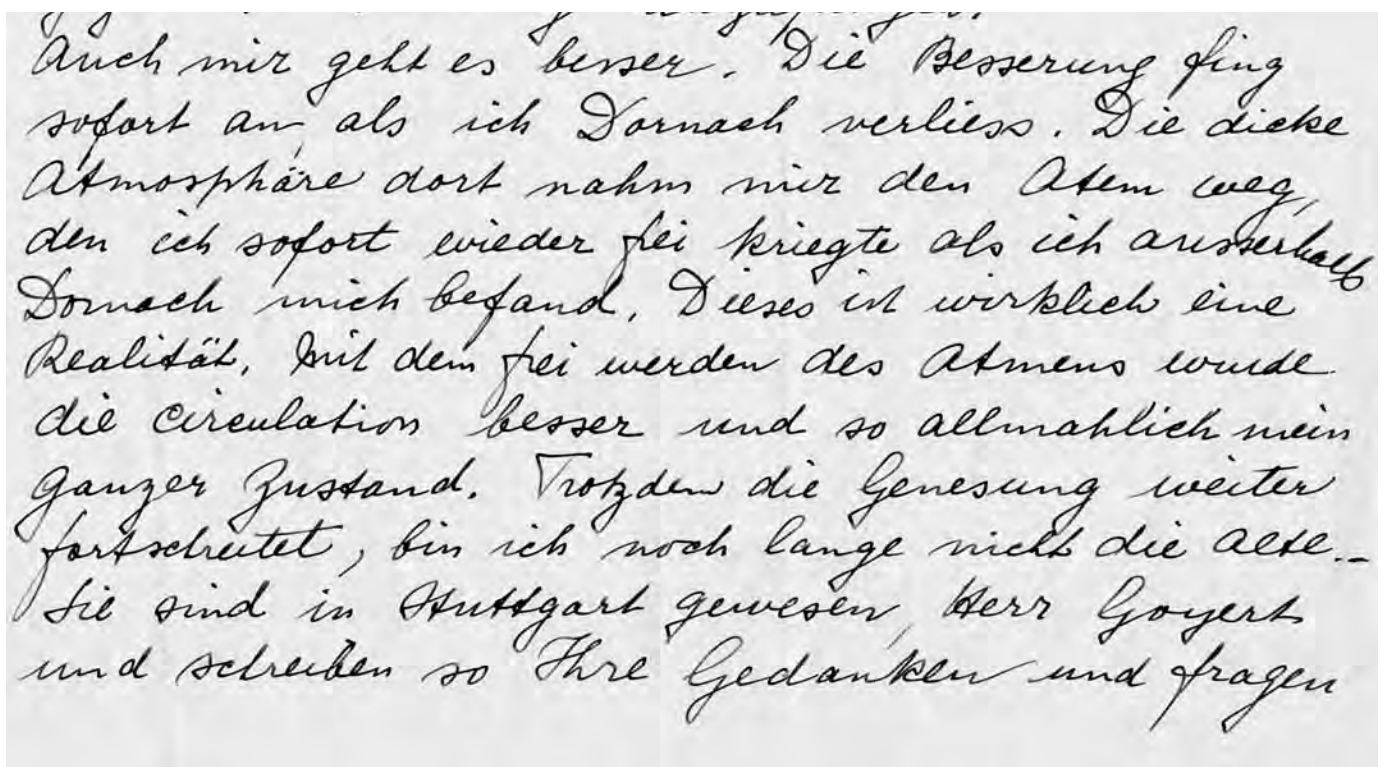 Auch mir geht es besser. Die Besserung fing
sofort an, als ich Dornach verliess. Die dicke
Atmosphäre dort nahm mir den Atem weg,
den ich sofort wieder frei kriegte als ich ausserhalb
Dornach mich befand. Dieses ist wirklich eine
Realität. Mit dem frei werden des Atmens wurde
die Circulation besser und so allmahlich mein
ganzer Zustand. Trotzdem die Genesung weiter
fortschreitet, bin ich noch lange nicht die Alte.–
Sie sind in Stuttgart gewesen, Herr Goyert
und schreiben so Ihre Gedanken und fragen